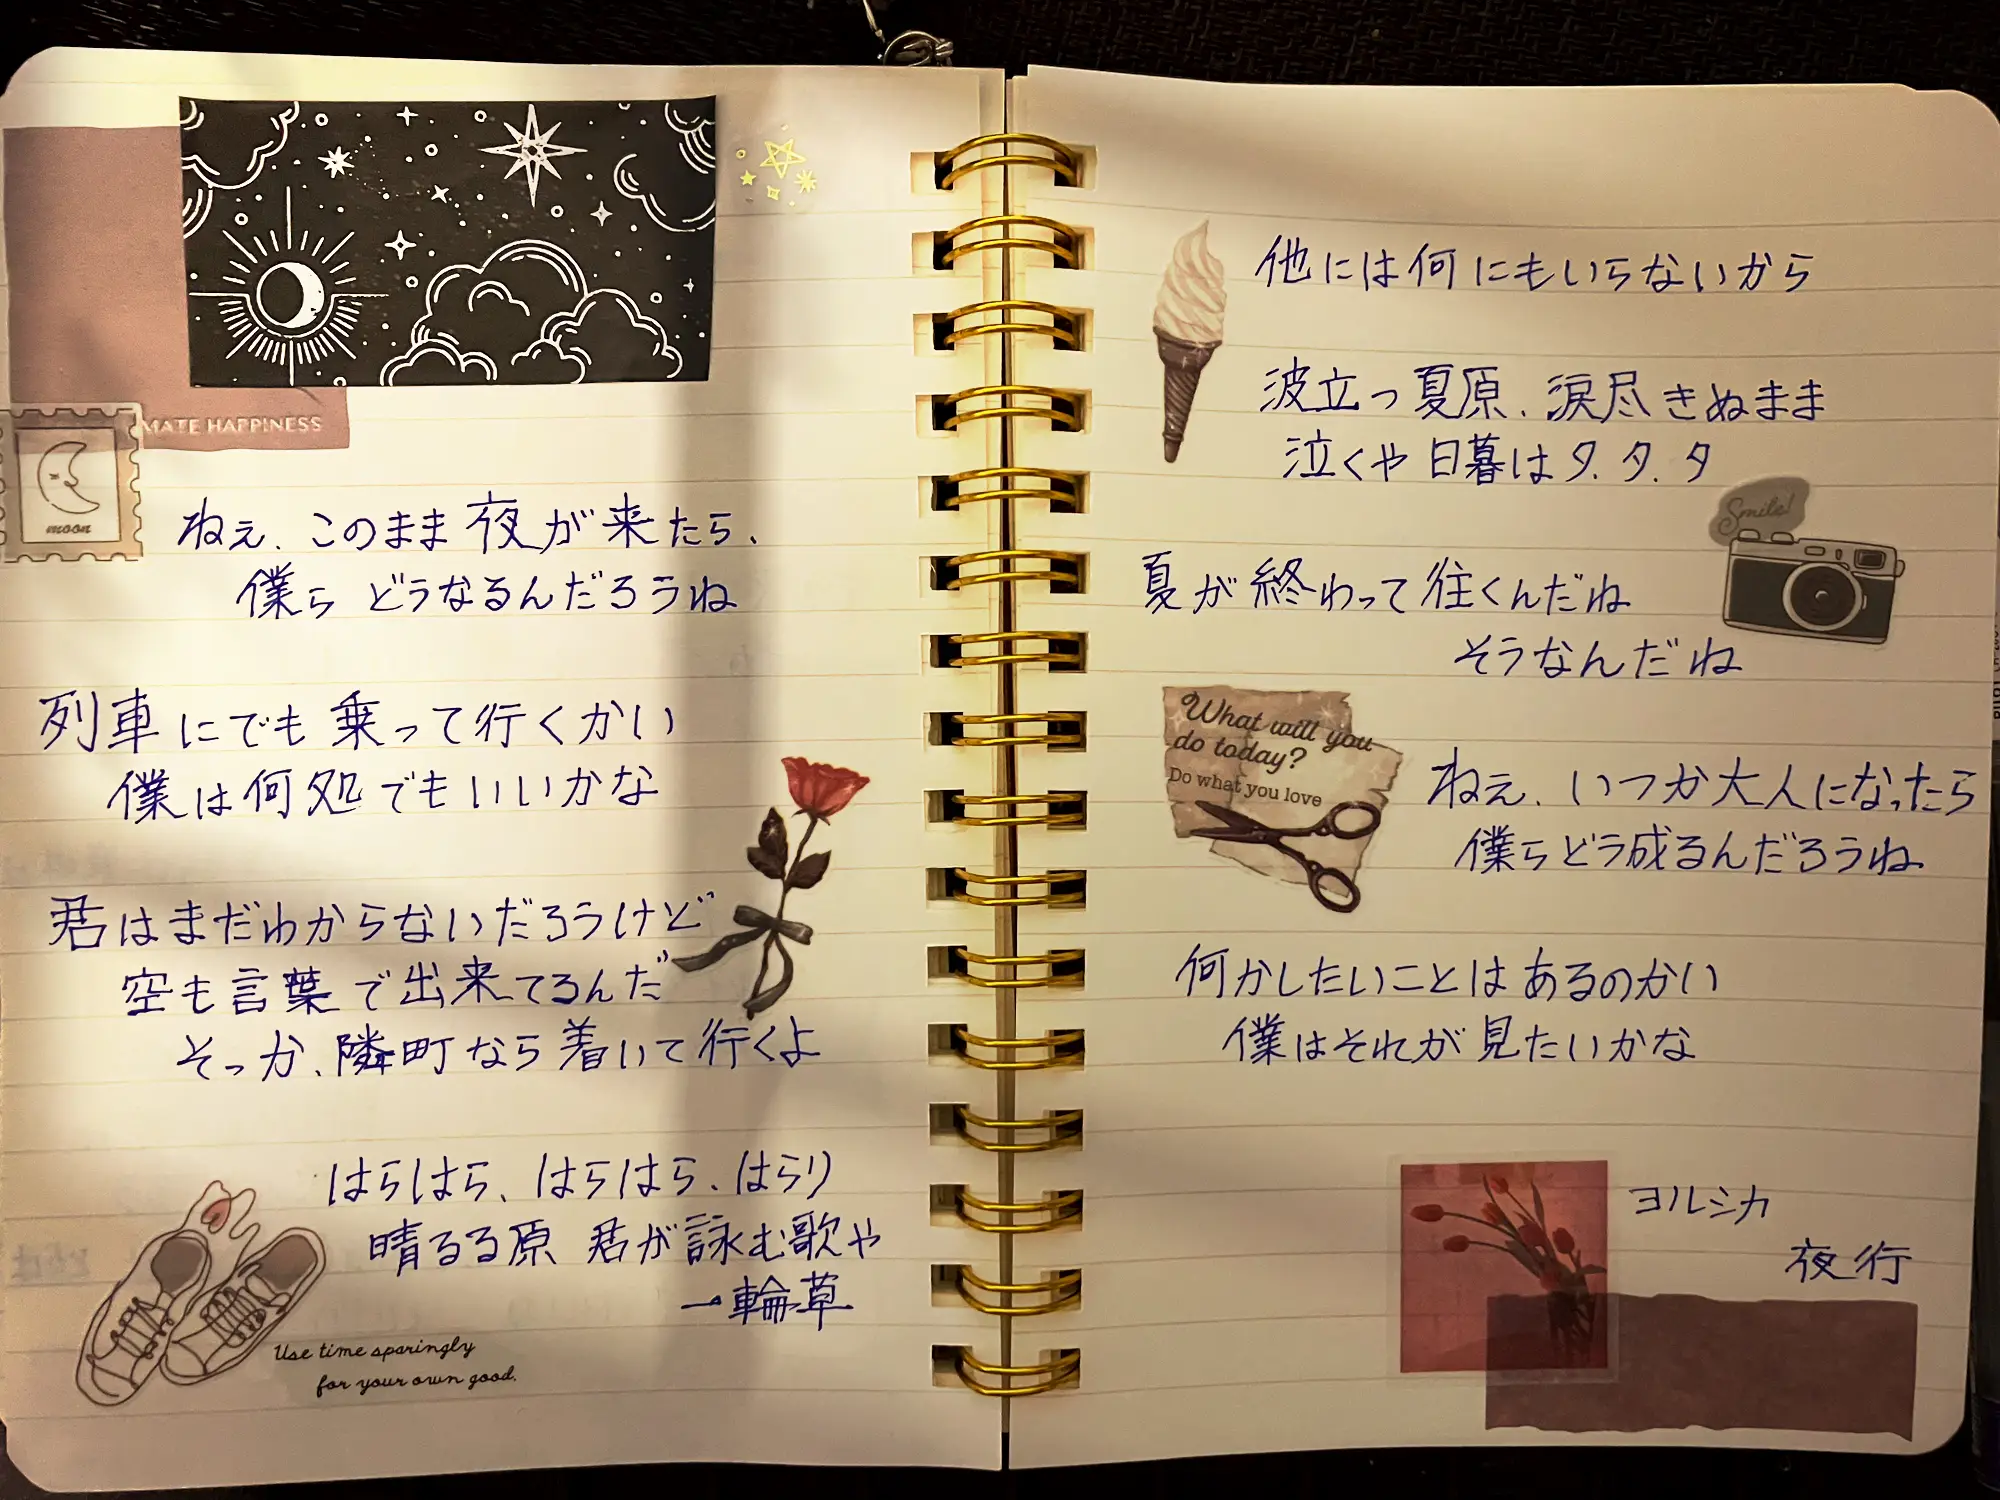 MATE HAPPINESS
moon
ねぇ、このまま夜が来たら、
僕らどうなるんだろうね
列車にでも乗って行くかい
僕は何処でもいいかな
君はまだわからないだろうけど
空も言葉で出来てるんだ
そっか、隣町なら着いて行くよ
はらはら、はらはら、はらり
晴るる原 君が詠む歌や
一輪草
Use time sparingly
for your own good.
他には何にもいらないから
波立つ夏原、涙尽きぬまま
泣くや日暮は夕、夕、夕
Smile!
夏が終わって往くんだね
そうなんだね
What will you
do today?
Do what you love
ねぇ、いつか大人になったら
僕らどう成るんだろうね
何かしたいことはあるのかい
僕はそれが見たいかな
ヨルシカ
夜行